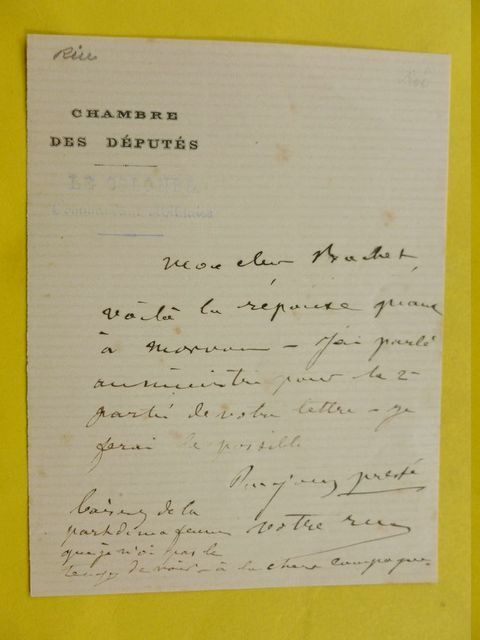 Rieu
CHAMBRE
DES DÉPUTÉS
Mon cher Bachet
voilà la réponse quant
à Morvan – J'ai parlé
au ministre pour la 2e
partie de votre lettre – je
ferai le possible
Toujours pressé
votre
baisers de la
part de ma femme
que je n'ai pas le
temps de voir – à la chère compagne.